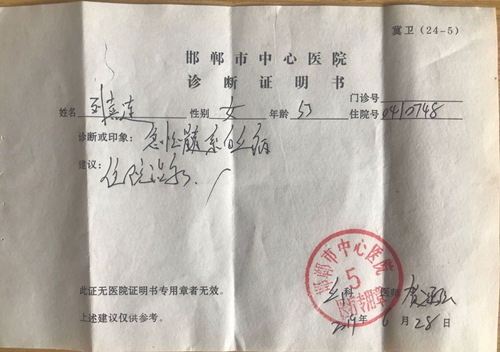 冀卫(24-5)
邯郸市中心医院
诊断证明书
门诊号
姓名 性别 女 年龄 51 住院号 0410748
诊断或印象: 急性髓系白血病
建议: 住院治疗
邯郸市中心医院
5
医疗专用章
此证无医院证明书专用章者无效。
科 医师
上述建议仅供参考。
2019年6月28日